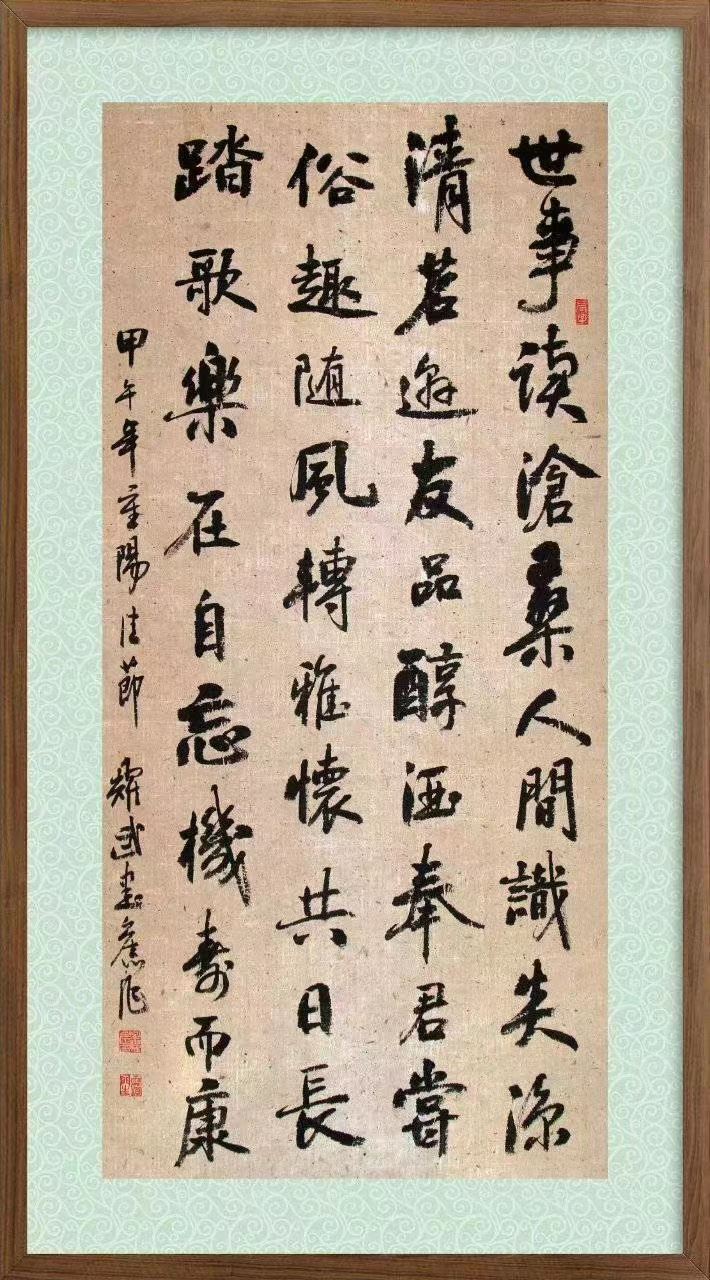 世事读滄桑人間識炎涼
清茗邀友品醇酒奉君嘗
俗趣随風轉雅懷共日長
踏歌樂在自忘機壽而康
甲午年重陽佳節 耀武書舊作